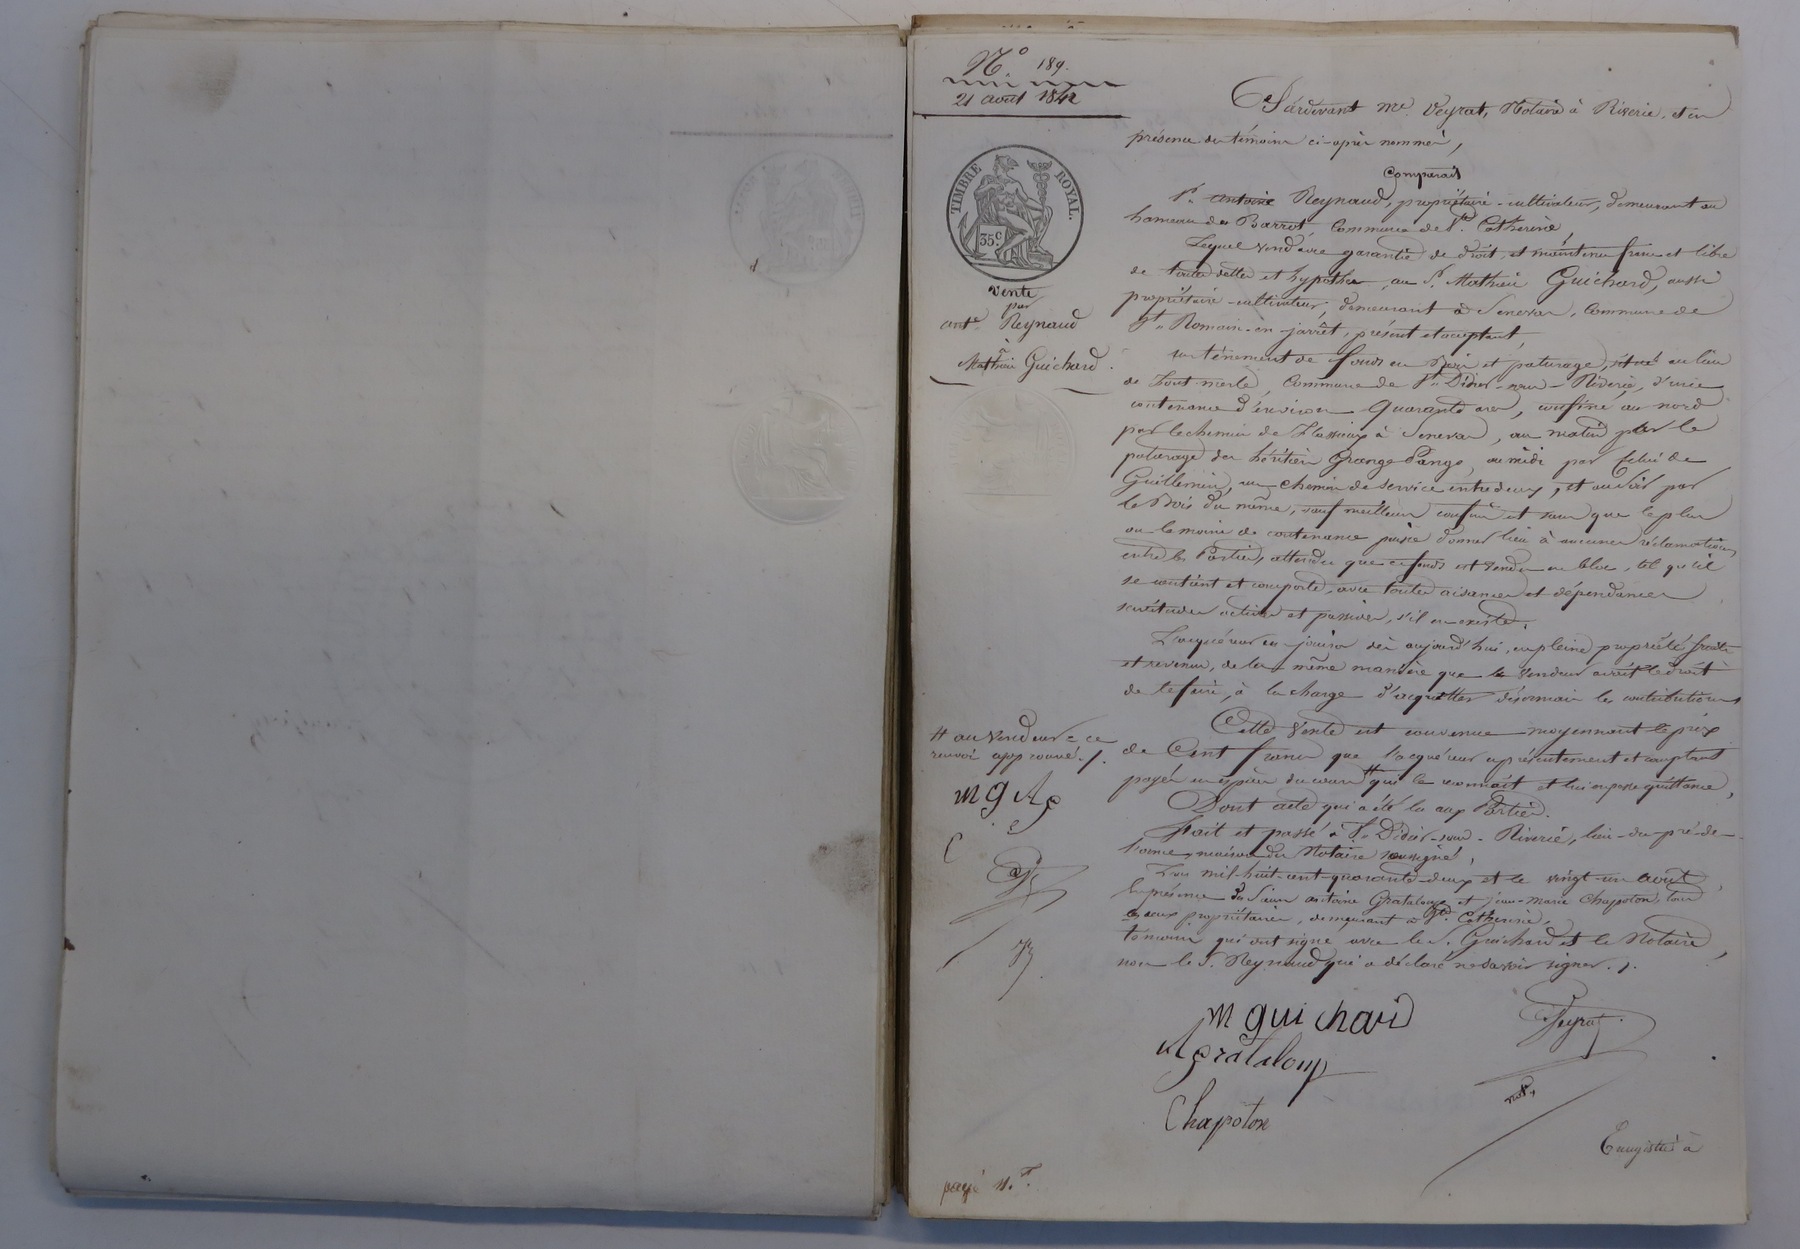 N.o 189.
21 août 1842
TIMBRE ROYAL.
35 c.
Vente
par
ant.e Reynaud
à
Mathieu Guichard.
Pardevant Me. Veyrat, Notaire à Riverie, et en
présence des témoins ci-après nommés,
Comparait
Sr. Antoine Reynaud, propriétaire-cultivateur, demeurant au
hameau des Barrot, Commune de Ste. Catherine,
Lequel vend avec garantie de droit, et maintenue franc et libre
de toutes dettes et hypothe, au Sr. Mathieu Guichard, aussi
propriétaire-cultivateur, demeurant à Senevas, Commune de
St. Romain-en-jarrêt, présent et acceptant,
un ténement de fonds en Bois et paturage, situé au lieu
de, Commune de St. Didier-sous-Riverie, d'une
contenance d'environ Quarante ares, confiné au nord
par le chemin de à Senevas, au matin par le
paturage des héritiers Grange, au midi par celui de
Guillemin, un chemin de service entredeux, et au soir par
le Bois du même, sauf meilleurs confins et sans que le plus
ou le moins de contenance puisse donner lieu à aucunes réclamations
entre les Parties, attendu que ce fonds est vendu en bloc, tel qu'il
se contient et comporte, avec toutes aisances et dépendances
servitudes actives et passives, s'il en existe.
L'acquéreur en jouira dès aujourd'hui, en pleine propriété, fruits
et revenus, de la même manière que le vendeur avait le droit
de le faire, à la charge d'acquitter désormais les contributions
Cette vente est convenue moyennant le prix
de Cent francs que l'acquéreur a présentement et comptant
payés en espèces du cours # qui le reconnait et lui en passe quittance,
# au vendeur = ce
renvoi approuvé./.
m g A g
C
Dont acte qui a été lu aux Parties.
Fait et passé à St. Didier-sous-Riverie, lieu-du-pré-de-
l'orme, maison du Notaire soussigné,
L'an mil-huit-cent-quarante-deux et le vingt-un août,
En présence du Sieur antoine Grataloup et jean-marie Chapoton, tous
deux propriétaires, demeurant à Ste. Catherine,
témoins qui ont signé avec le S. Guichard et le Notaire,
non le S. Reynaud qui a déclaré ne savoir signer./.
m guichard
Veyrat
A grataloup
Chapoton
Enregistré à
payé 11.f.